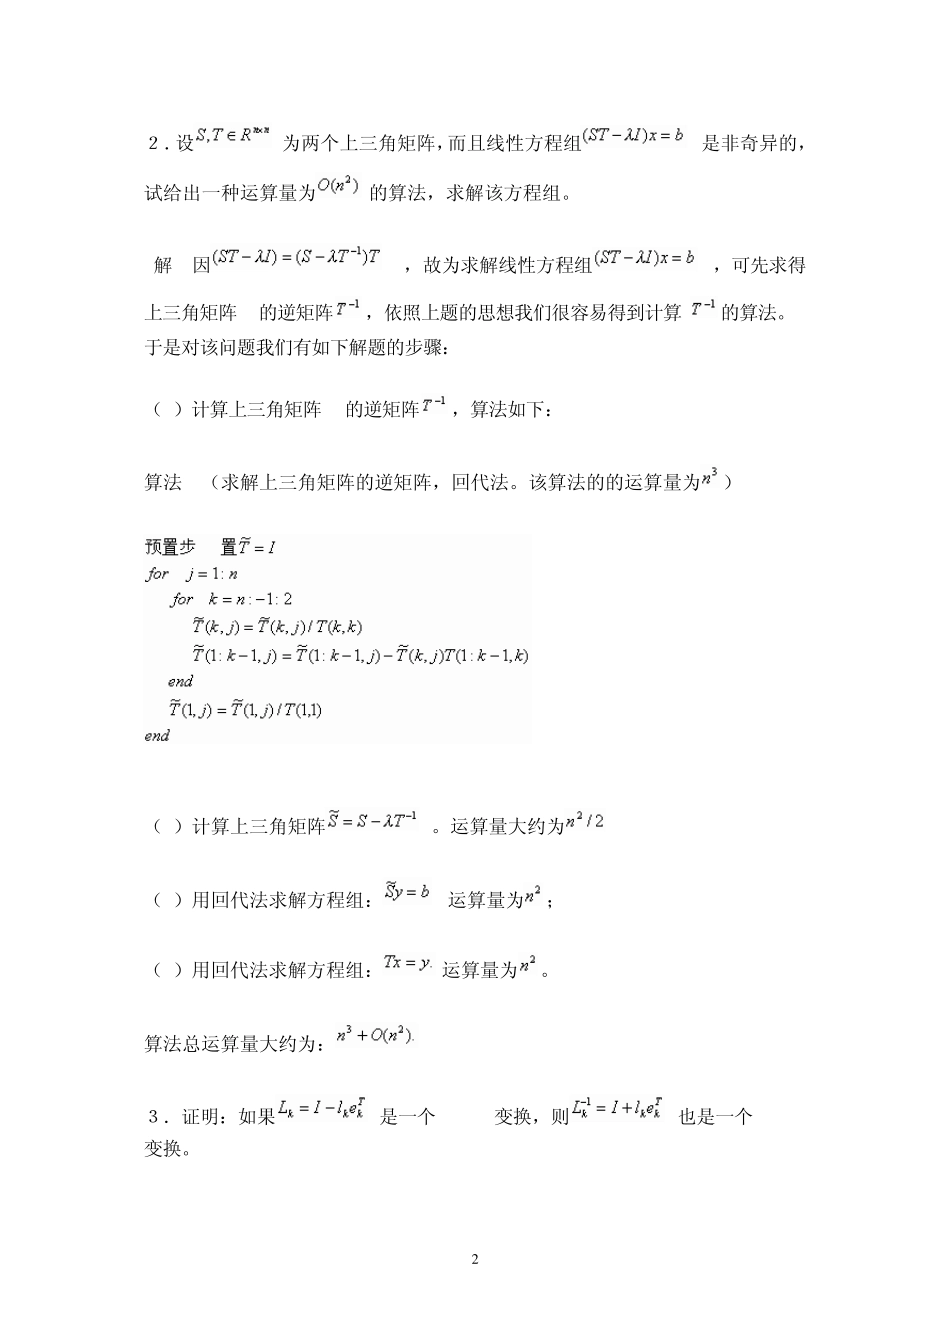 ２.设S,T∈R^{n×n} 为两个上三角矩阵,而且线性方程组(ST−λI)x=b 是非奇异的,
试给出一种运算量为O(n²) 的算法，求解该方程组。
解 因(ST−λI)=(S−λT⁻¹)T ，故为求解线性方程组(ST−λI)x=b ，可先求得
上三角矩阵 的逆矩阵T⁻¹，依照上题的思想我们很容易得到计算 T⁻¹ 的算法。
于是对该问题我们有如下解题的步骤：
（ ）计算上三角矩阵 的逆矩阵T⁻¹，算法如下：
算法 （求解上三角矩阵的逆矩阵，回代法。该算法的的运算量为n³）
预置步 置T̃=I
for j=1:n
for k=n:−1:2
T̃(k,j)=T̃(k,j)/T(k,k)
T̃(1:k−1,j)=T̃(1:k−1,j)−T̃(k,j)T(1:k−1,k)
end
T̃(1,j)=T̃(1,j)/T(1,1)
end
（ ）计算上三角矩阵S̃=S−λT⁻¹ 。运算量大约为n²/2
（ ）用回代法求解方程组：S̃y=b 运算量为n²；
（ ）用回代法求解方程组：Tx=y. 运算量为n²。
算法总运算量大约为：n³+O(n²).
３．证明：如果L_k=I−l_k e_k^T 是一个 变换，则L_k⁻¹=I+l_k e_k^T 也是一个
变换。
2